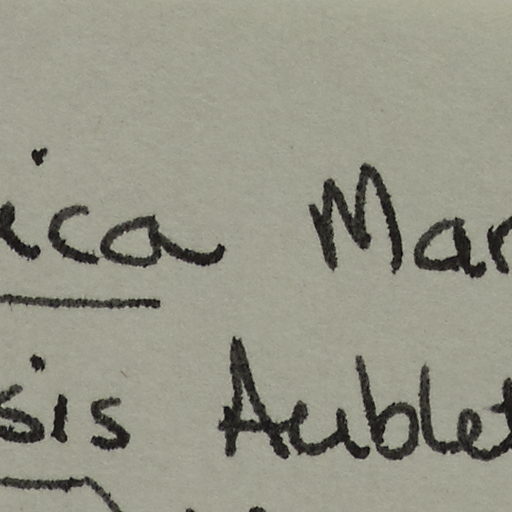 ica Mar
sis Aublet